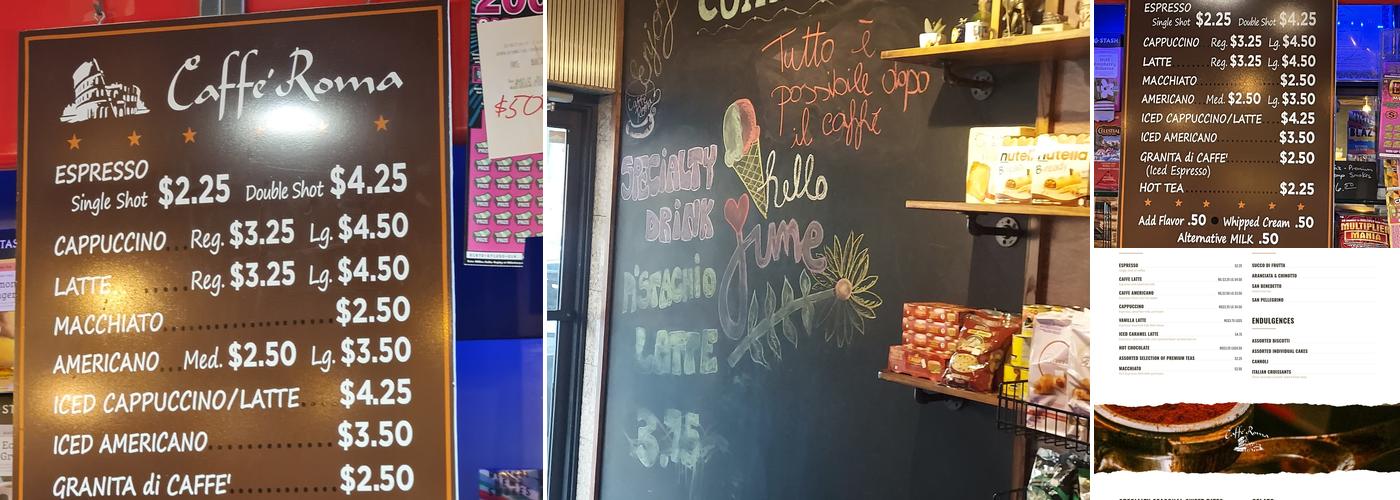 Caffé Roma
ESPRESSO
Single Shot $2.25 Double Shot $4.25
CAPPUCCINO Reg. $3.25 Lg. $4.50
LATTE Reg. $3.25 Lg. $4.50
MACCHIATO $2.50
AMERICANO Med. $2.50 Lg. $3.50
ICED CAPPUCCINO/LATTE $4.25
ICED AMERICANO $3.50
GRANITA di CAFFE' $2.50
$50
Tutto è
possibile dopo
il caffè
SPECIALTY
DRINK
hello
June
PISTACHIO
LATTE
3.75
nutella
nutella
ESPRESSO
Single Shot $2.25 Double Shot $4.25
CAPPUCCINO Reg. $3.25 Lg. $4.50
LATTE Reg. $3.25 Lg. $4.50
MACCHIATO $2.50
AMERICANO Med. $2.50 Lg. $3.50
ICED CAPPUCCINO/LATTE $4.25
ICED AMERICANO $3.50
GRANITA di CAFFE' $2.50
(Iced Espresso)
HOT TEA $2.25
Add Flavor .50 Whipped Cream .50
Alternative MILK .50
MULTIPLIER
MANIA
ESPRESSO
CAFFE LATTE
CAFFE AMERICANO
CAPPUCCINO
VANILLA LATTE
ICED CARAMEL LATTE
HOT CHOCOLATE
ASSORTED SELECTION OF PREMIUM TEAS
MACCHIATO
SUCCO DI FRUTTA
ARANCIATA & CHINOTTO
SAN BENEDETTO
SAN PELLEGRINO
ENDULGENCES
ASSORTED BISCOTTI
ASSORTED INDIVIDUAL CAKES
CANNOLI
ITALIAN CROISSANTS
Caffé Roma